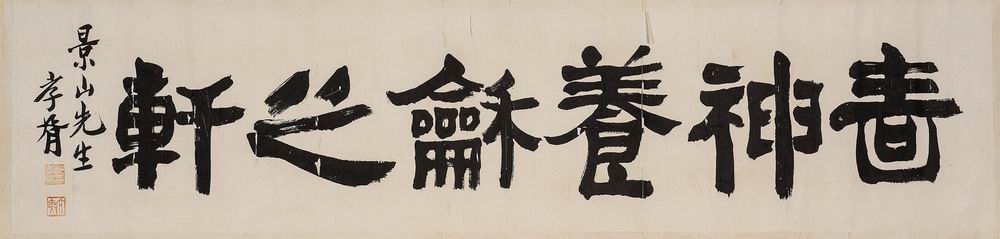 嗇神養龢之軒
景山先生
孝胥